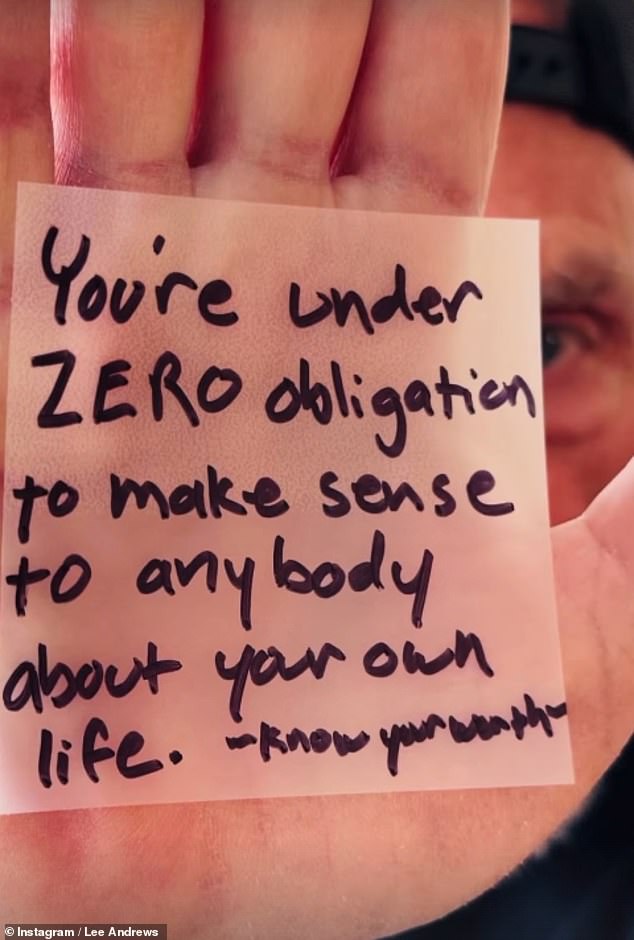 You're under
ZERO obligation
to make sense
to anybody
about your own
life. ~know your worth~
© Instagram / Lee Andrews